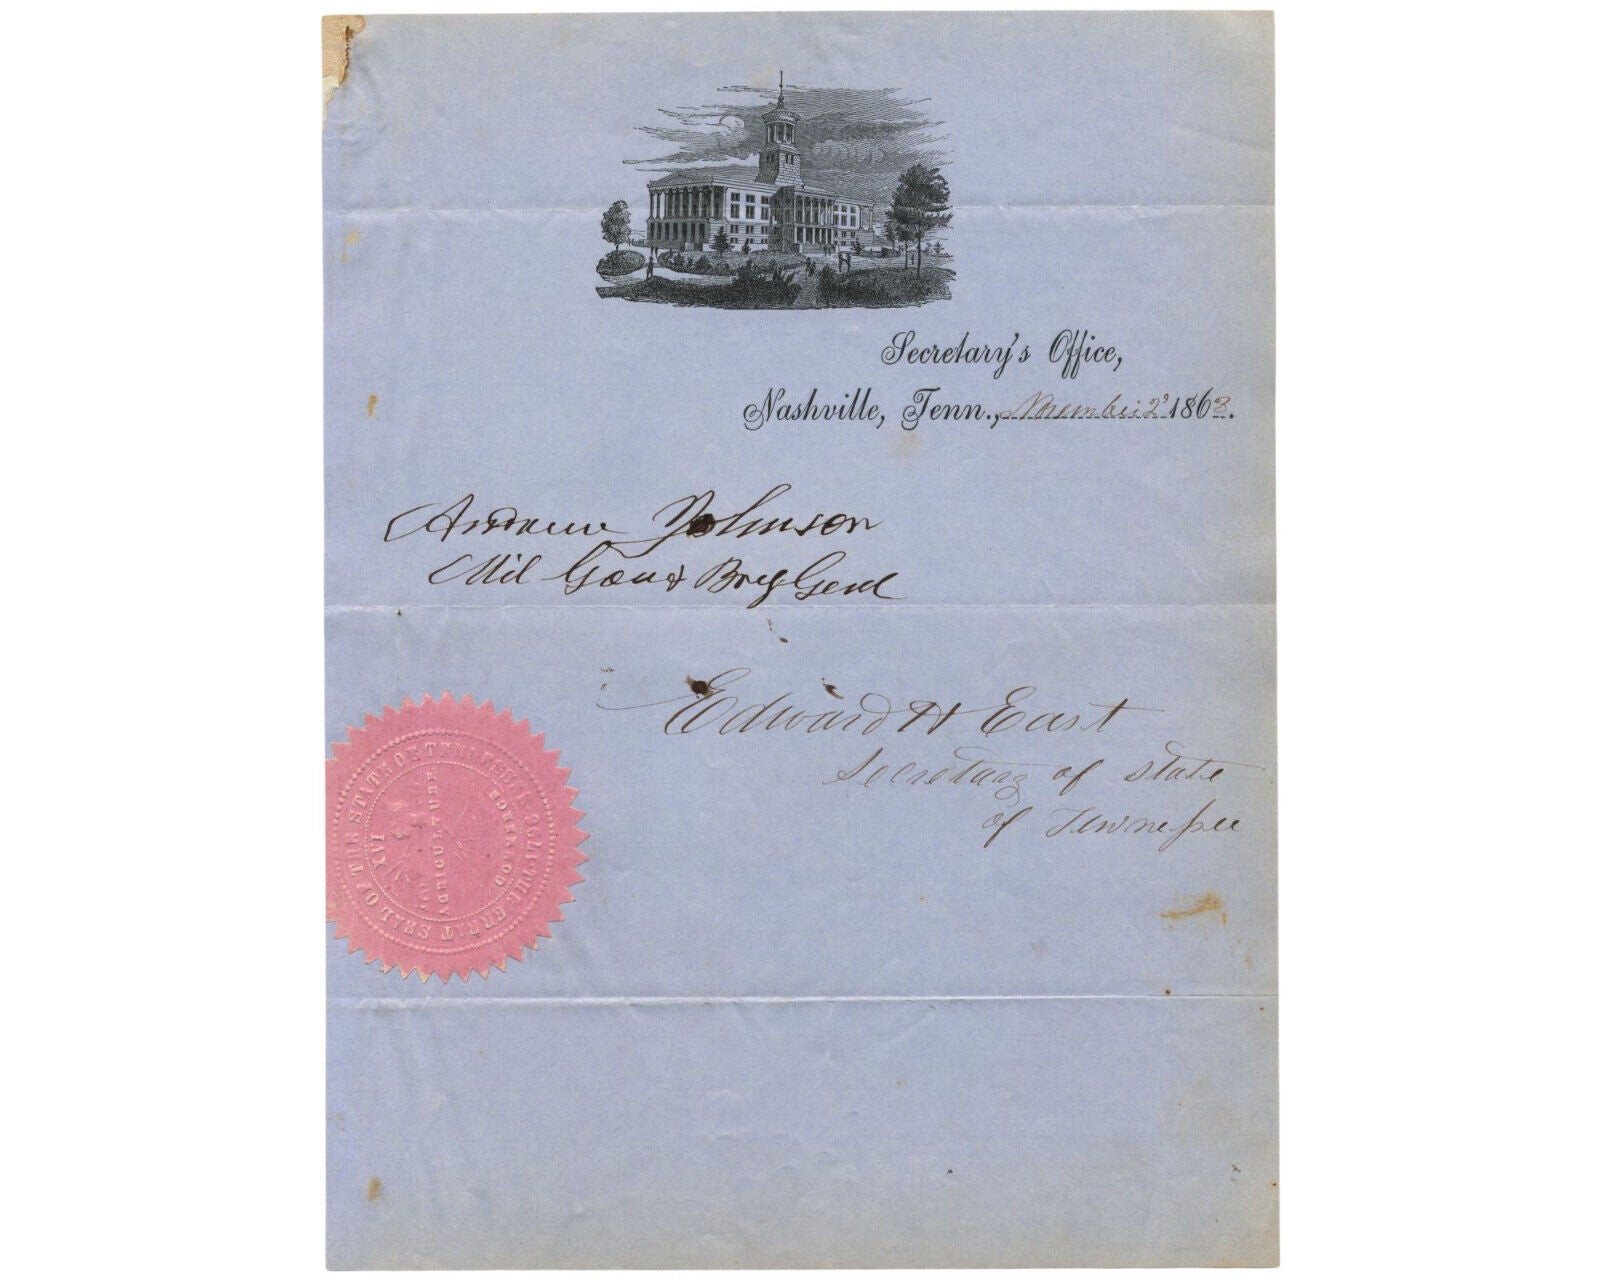 Secretary's Office,
Nashville, Tenn., November 2d 1863.
Andrew Johnson
Mil Gov & Brig Genl
Edward H East
Secretary of State
of Tennessee
THE GREAT SEAL OF THE STATE OF TENNESSEE 1796
XVI
AGRICULTURE